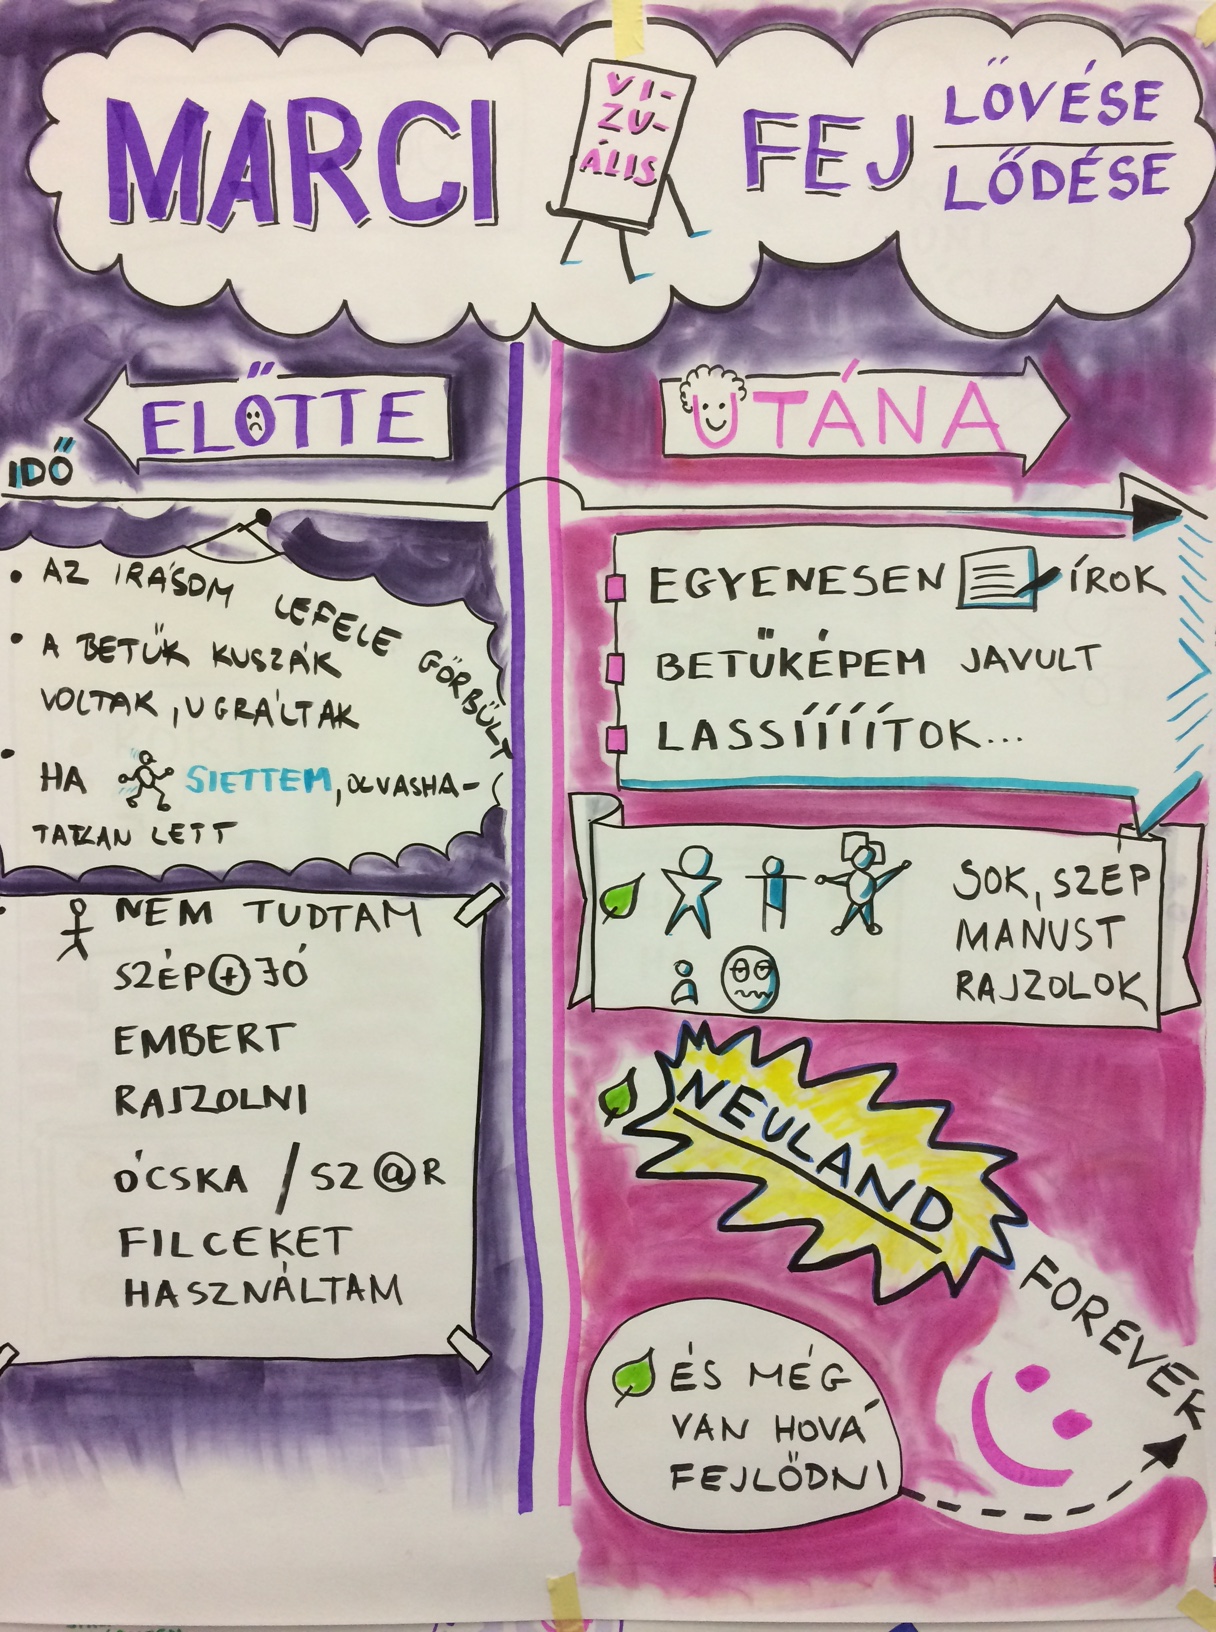 MARCI
VI-
ZU-
ÁLIS
FEJ
LŐVÉSE
LŐDÉSE
ELŐTTE
UTÁNA
IDŐ
• AZ IRÁSOM LEFELE GÖRBÜLT
• A BETŰK KUSZÁK
VOLTAK, UGRÁLTAK
• HA SIETTEM, OLVASHA-
TATLAN LETT
• NEM TUDTAM
SZÉP + JÓ
EMBERT
RAJZOLNI
ÓCSKA / SZ@R
FILCEKET
HASZNÁLTAM
EGYENESEN ÍROK
BETŰKÉPEM JAVULT
LASSÍÍÍÍÍTOK...
SOK, SZÉP
MANUST
RAJZOLOK
NEULAND
FOREVÉK
ÉS MÉG
VAN HOVÁ
FEJLŐDNI